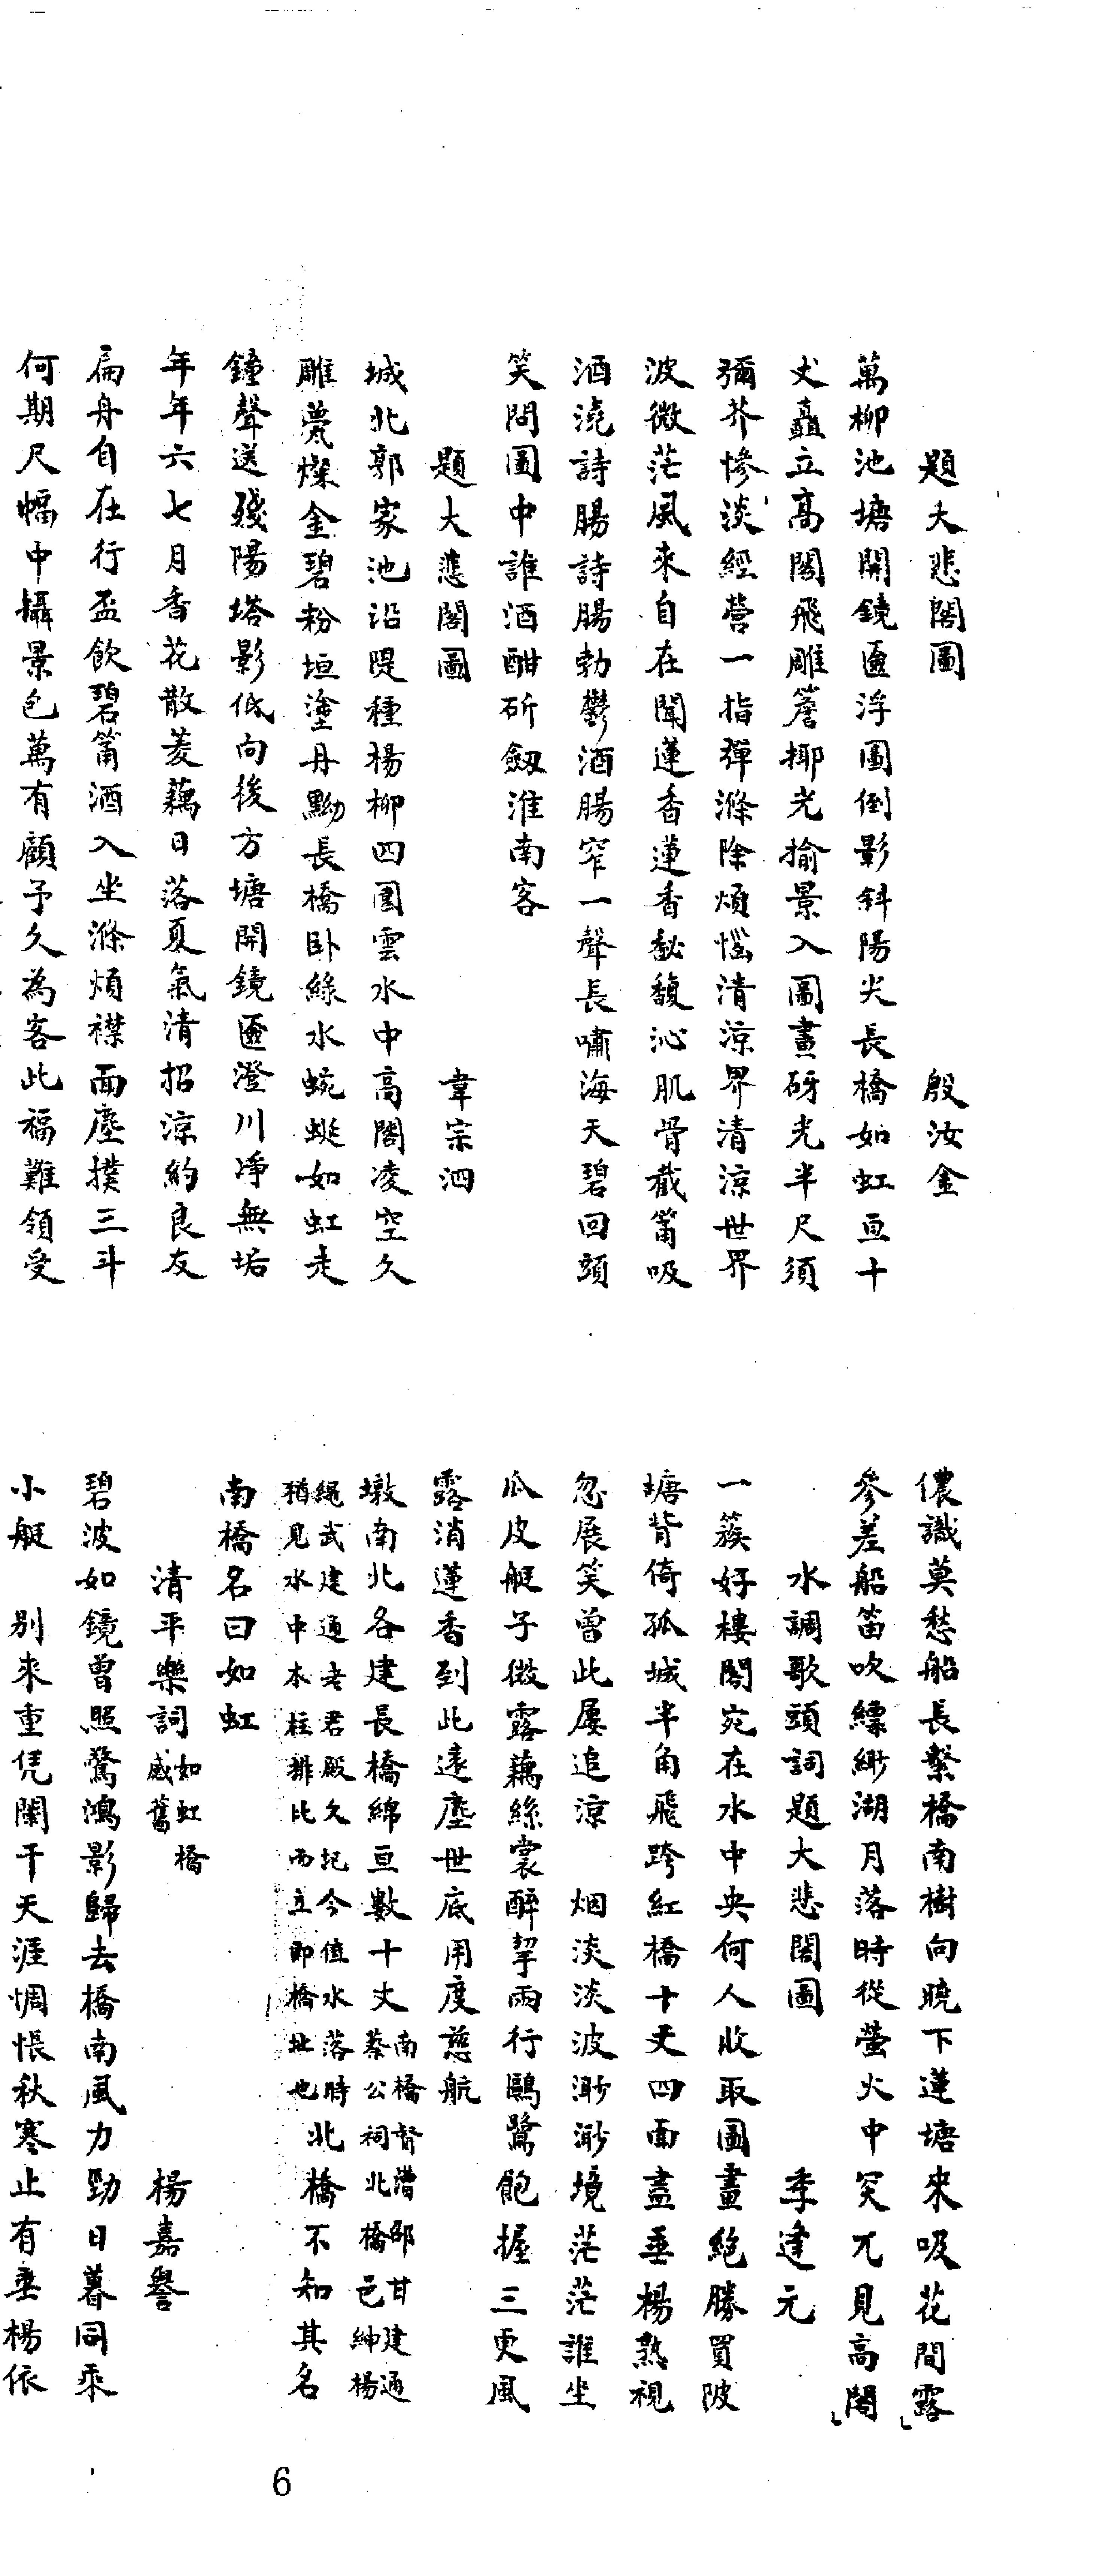 題大悲閣圖　殷汝金
萬柳池塘開鏡匳浮圖倒影斜陽尖長橋如虹亘十
丈矗立高閣飛雕簷揶光揄景入圖畫砑光半尺須
彌芥慘淡經營一指彈滌除煩惱清涼界清涼世界
波微茫風來自在聞蓮香蓮香馝馥沁肌骨截筩吸
酒澆詩腸詩腸勃鬱酒腸窄一聲長嘯海天碧回頭
笑問圖中誰酒酣斫劔淮南客
題大悲閣圖　韋宗泗
城北郭家池沿隄種楊柳四圍雲水中高閣凌空久
雕甍燦金碧粉垣塗丹黝長橋卧綠水蜿蜒如虹走
鐘聲送殘陽塔影低向後方塘開鏡匳澄川淨無垢
年年六七月香花散菱藕日落夏氣清招涼約良友
扁舟自在行盃飲碧筩酒入坐滌煩襟面塵撲三斗
何期尺幅中攝景包萬有顧予久為客此福難領受
儂識莫愁船長繫橋南樹向曉下蓮塘來吸花間露
參差船笛吹縹緲湖月落時從螢火中突兀見高閣
水調歌頭詞題大悲閣圖　季逢元
一簇好樓閣宛在水中央何人收取圖畫絕勝買陂
塘背倚孤城半角飛跨紅橋十丈四面盡垂楊熟視
忽展笑曾此屢追涼　烟淡淡波渺渺境茫茫誰坐
瓜皮艇子微露藕絲裳醉挈兩行鷗鷺飽握三更風
露消蓮香到此遠塵世底用度慈航
墩南北各建長橋綿亘數十丈南橋督漕邵甘建通蔡公祠北橋邑紳楊
繩武建通老君殿久圯今值水落時猶見水中木柱排比而立即橋址也北橋不知其名
南橋名曰如虹
清平樂詞如虹橋感舊　楊嘉譽
碧波如鏡曾照驚鴻影歸去橋南風力勁日暮同乘
小艇　別來重凭闌干天涯惆悵秋寒止有垂楊依
6